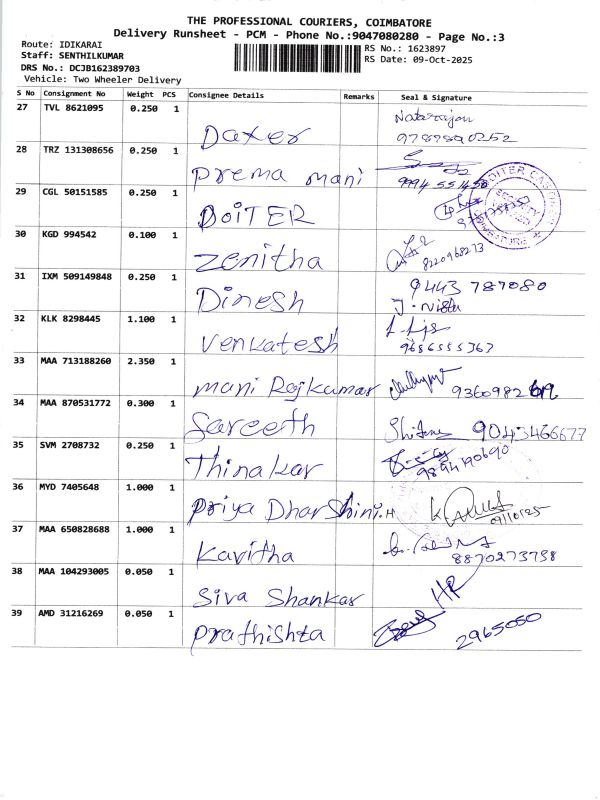 THE PROFESSIONAL COURIERS, COIMBATORE
Delivery Runsheet - PCM - Phone No.:9047080280 - Page No.:3
Route: IDIKARAI
RS No.: 1623897
Staff: SENTHILKUMAR
RS Date: 09-Oct-2025
DRS No.: DCJB162389703
Vehicle: Two Wheeler Delivery
S No Consignment No Weight PCS Consignee Details Remarks Seal & Signature
27 TVL 8621095 0.250 1 Daxer Natarajan
28 TRZ 131308656 0.250 1 Prema mani 9994551450
29 CGL 50151585 0.250 1 DOITER
30 KGD 994542 0.100 1 Zenitha 8220968273
31 IXM 509149848 0.250 1 Dinesh 9443 787080
32 KLK 8298445 1.100 1 Venkatesh 9656555367
33 MAA 713188260 2.350 1 mani Rajkumar
34 MAA 870531772 0.300 1 Sareeth 9043466677
35 SVM 2708732 0.250 1 Thinakar 9894190690
36 MYD 7405648 1.000 1 Priya Dharshini.H 09/10/25
37 MAA 650828688 1.000 1 Kavitha 8870273758
38 MAA 104293005 0.050 1 Siva Shankar HR
39 AMD 31216269 0.050 1 Prathishta 2965050